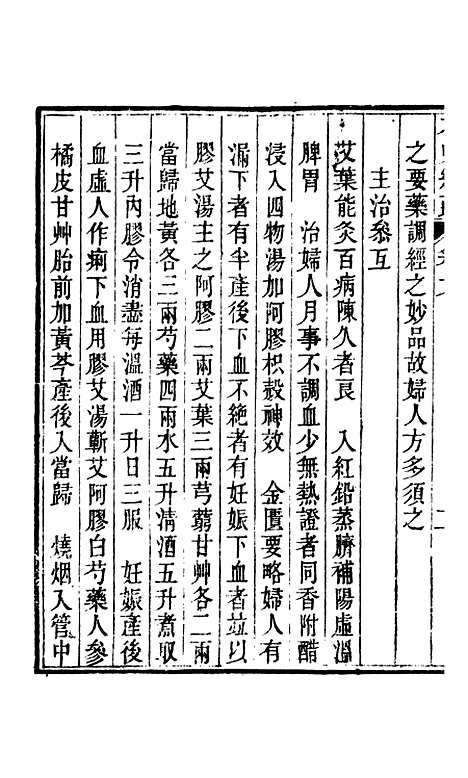 之要藥調經之妙品故婦人方多須之
主治叅互
艾葉能灸百病陳久者良　入紅鉛蒸臍補陽虛溫
脾胃　治婦人月事不調血少無熱證者同香附醋
浸入四物湯加阿膠枳殼神效　金匱要略婦人有
漏下者有半產後下血不絕者有妊娠下血者竝以
膠艾湯主之阿膠二兩艾葉三兩芎藭甘艸各二兩
當歸地黃各三兩芍藥四兩水五升清酒五升煮取
三升內膠令消盡每溫酒一升日三服　妊娠產後
血虛人作痢下血用膠艾湯蘄艾阿膠白芍藥人參
橘皮甘艸胎前加黃芩產後入當歸　燒烟入管中